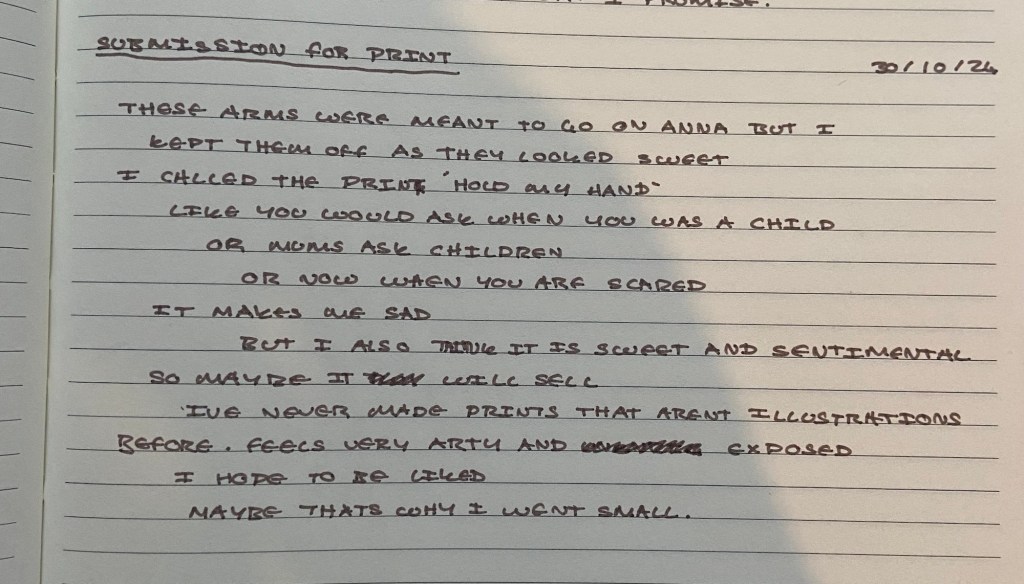 I PROMISE.
SUBMISSION FOR PRINT
30/10/24
THESE ARMS WERE MEANT TO GO ON ANNA BUT I
KEPT THEM OFF AS THEY LOOKED SWEET
I CALLED THE PRINT 'HOLD MY HAND'
LIKE YOU WOULD ASK WHEN YOU WAS A CHILD
OR MUMS ASK CHILDREN
OR NOW WHEN YOU ARE SCARED
IT MAKES ME SAD
BUT I ALSO THINK IT IS SWEET AND SENTIMENTAL
SO MAYBE IT WILL SELL
I'VE NEVER MADE PRINTS THAT ARENT ILLUSTRATIONS
BEFORE. FEELS VERY ARTY AND EXPOSED
I HOPE TO BE LIKED
MAYBE THATS WHY I WENT SMALL.